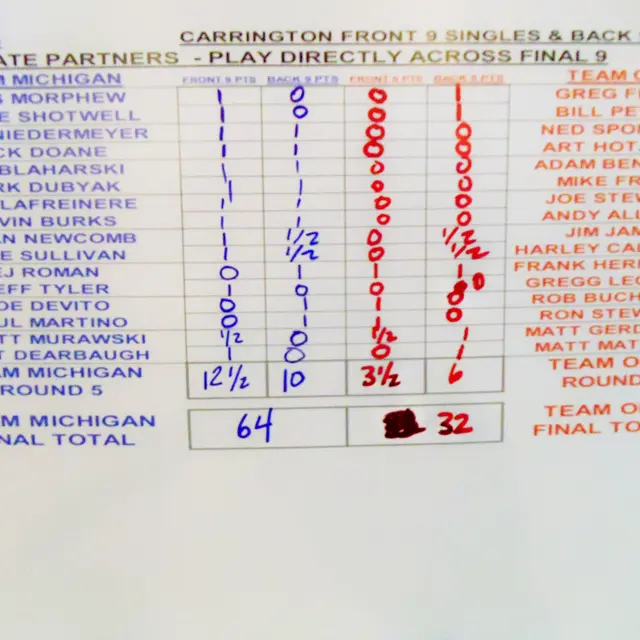 CARRINGTON FRONT 9 SINGLES & BACK 9
ATE PARTNERS - PLAY DIRECTLY ACROSS FINAL 9
M MICHIGAN FRONT 9 PTS BACK 9 PTS FRONT 9 PTS BACK 9 PTS TEAM O
S MORPHEW 1 0 0 1 GREG F
E SHOTWELL 1 0 0 1 BILL PE
NIEDERMEYER 1 1 0 0 NED SPO
CK DOANE 1 1 0 0 ART HOT
BLAHARSKI 1 1 0 0 ADAM BEN
RK DUBYAK 1 1 0 0 MIKE FR
LAFREINERE 1 1 0 0 JOE STEW
VIN BURKS 1 1 0 0 ANDY ALL
AN NEWCOMB 1 1/2 0 1/2 JIM JAM
E SULLIVAN 1 1/2 0 1/2 HARLEY CA
EJ ROMAN 0 1 1 1 FRANK HER
EFF TYLER 1 0 1 0 GREGG LE
OE DEVITO 0 1 1 0 ROB BUCH
UL MARTINO 0 1 1 0 RON STEW
TT MURAWSKI 1/2 0 1/2 1 MATT GER
T DEARBAUGH 1 0 0 1 MATT MAT
AM MICHIGAN 12 1/2 10 3 1/2 6 TEAM O
ROUND 5 ROUN
AM MICHIGAN 64 32 TEAM O
NAL TOTAL FINAL TO